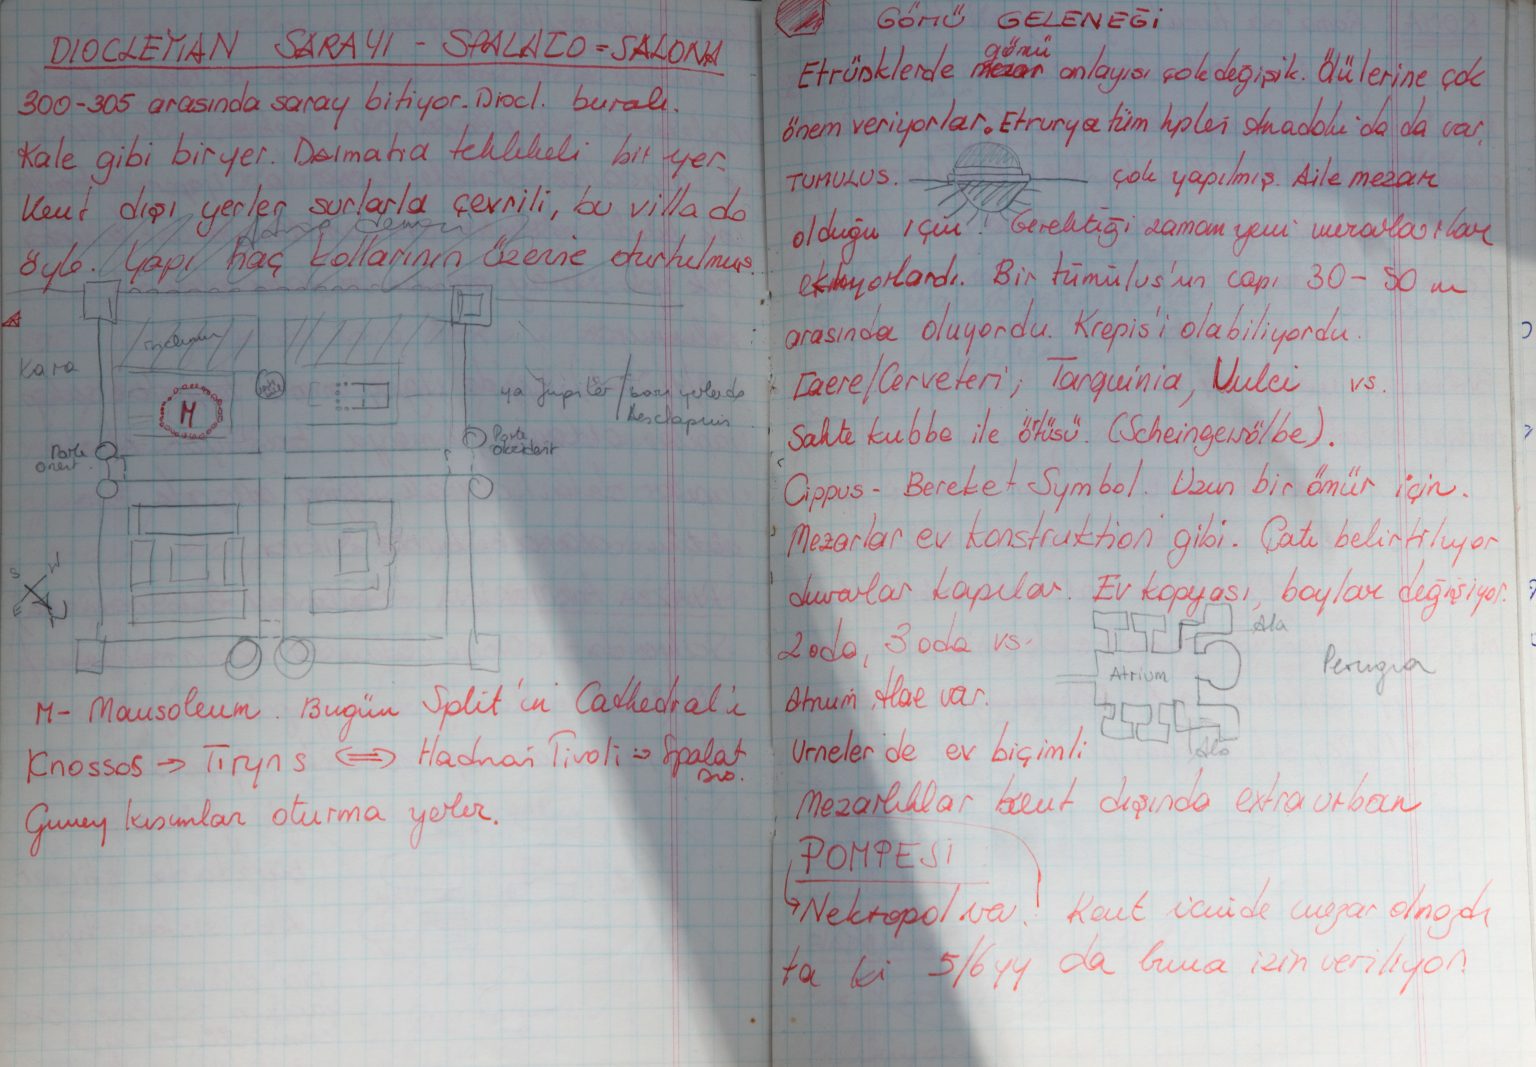 DIOCLETIAN SARAYI - SPALATO = SALONA
300-305 arasında saray bitiyor. Diocl. buralı.
Kale gibi bir yer. Dalmatia tehlikeli bir yer.
Kent dışı yerler surlarla çevrili, bu villa da
öyle. Yapı haç kollarının üzerine oturtulmuş.
Kara
M
ya Jupiter / bazı yerlerde
Aesclapius
Porta
orient
Porta
occident
S W
E N
M- Mausoleum. Bugün Split'in Cathedral'i
Knossos → Tiryns ⟺ Hadrian Tivoli → Spalat
Güney kısımlar oturma yerler.
GÖMÜ GELENEĞİ
Etrüsklerde gömü anlayışı çok değişik. Ölülerine çok
önem veriyorlar. Etrurya tüm tipleri Anadolu'da da var.
TUMULUS. çok yapılmış. Aile mezarı
olduğu için! Gerektiği zaman yeni mezarlar
ekliyorlardı. Bir tümülüs'ün çapı 30-50 m
arasında oluyordu. Krepis'i olabiliyordu.
Caere/Cerveteri, Tarquinia, Vulci vs.
Sahte kubbe ile örtüsü. (Scheingewölbe).
Cippus - Bereket Symbol. Uzun bir ömür için.
Mezarlar ev konstruktion gibi. Çatı belirtiliyor
duvarlar kapılar. Ev kopyası, boylar değişiyor.
2 oda, 3 oda vs.
Ala
Atrium
Perugia
Atrium, Alae var.
Ala
Urneler de ev biçimli
Mezarlıklar kent dışında extraurban
POMPESİ
→ Nekropol var. Kent içinde mezar olmazdı
ta ki 5/6 yy da buna izin veriliyor.